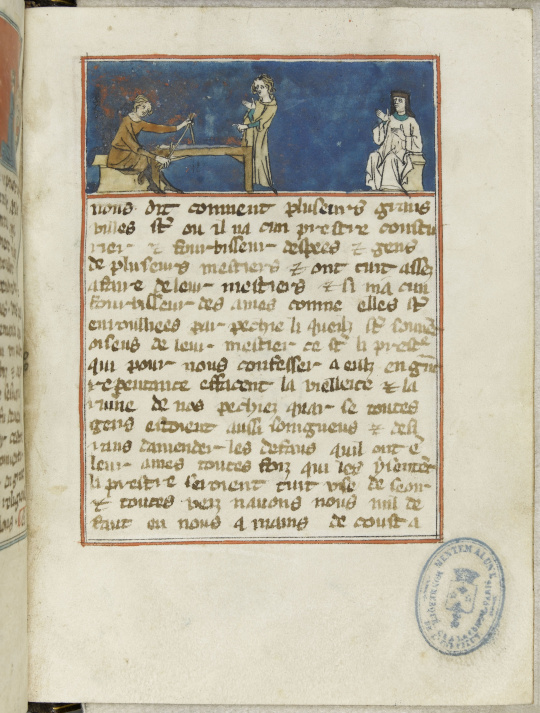 nous dit coment pluseurs grans
villes st ou il na cun prestre coustu
rier & fourbisseur despees & gens
de pluseurs mestiers & ont tuit asses
afaire de leur mestiers & si na cun
fourbisseur des ames comme elles st
enroulliees par pechie li queilz st souvet
oiseus de leur mestier ce st li prest
qui pour nous confesser a eulz en gr
repentance effacent la viellete & la
ruine de nos pechiez quar se toutes
gens estoient aussi songneus & desi
rans damender les defaus quil ont e
leur ames toutes foiz qui les
li prestre seroient tuit
& toutes voiz navons nous nul de
faut en nous a mains de coust a